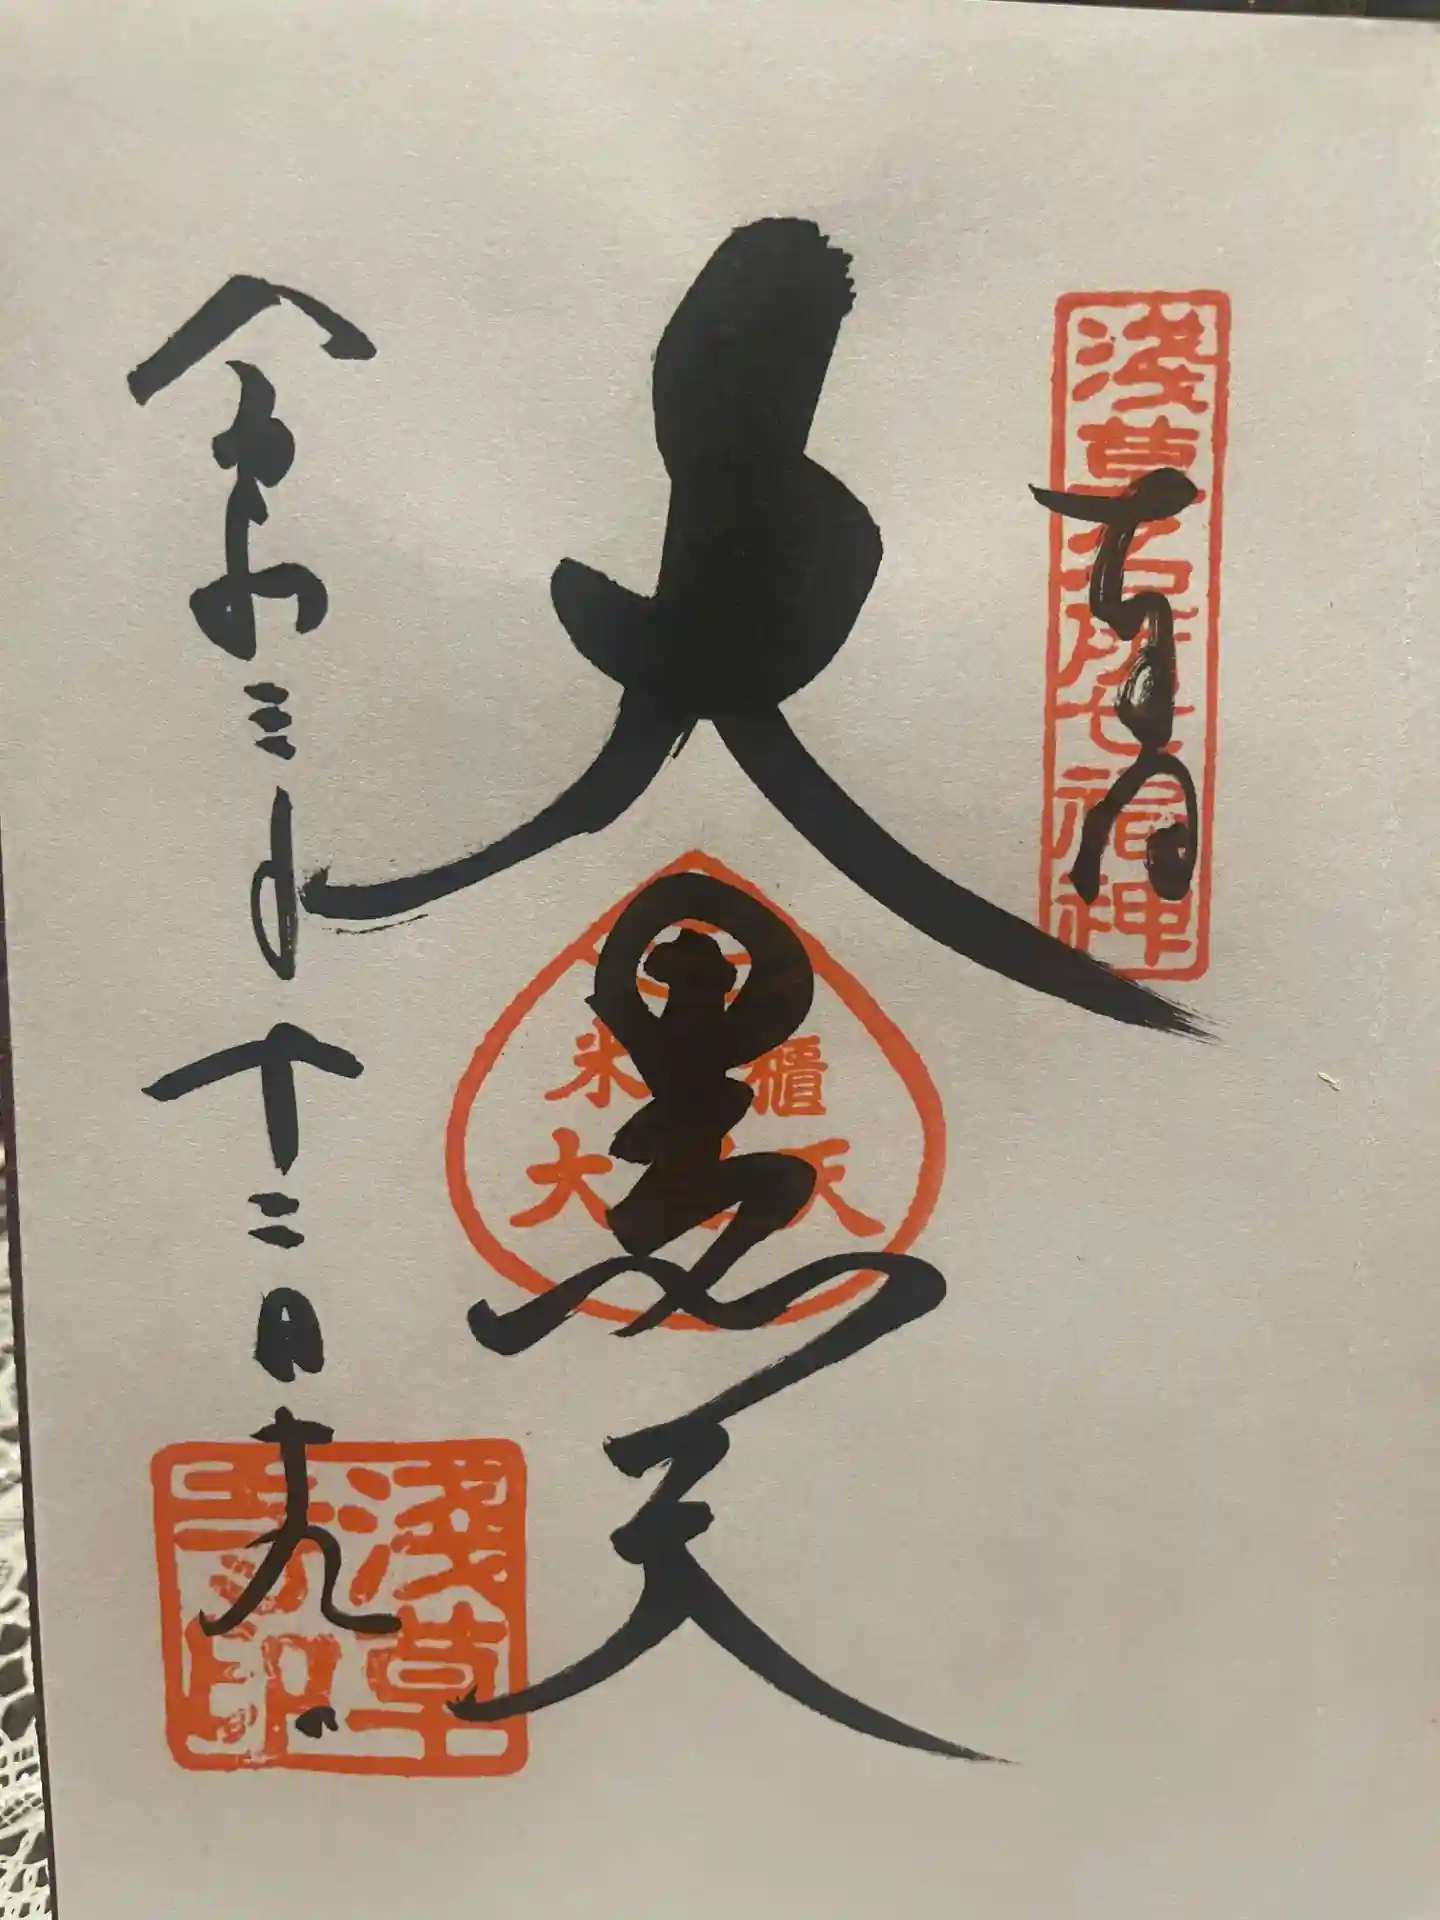 淺草名所七福神
奉拝
大黒天
米櫃
大黒天
令和三年十二月十九日
淺草
寺印